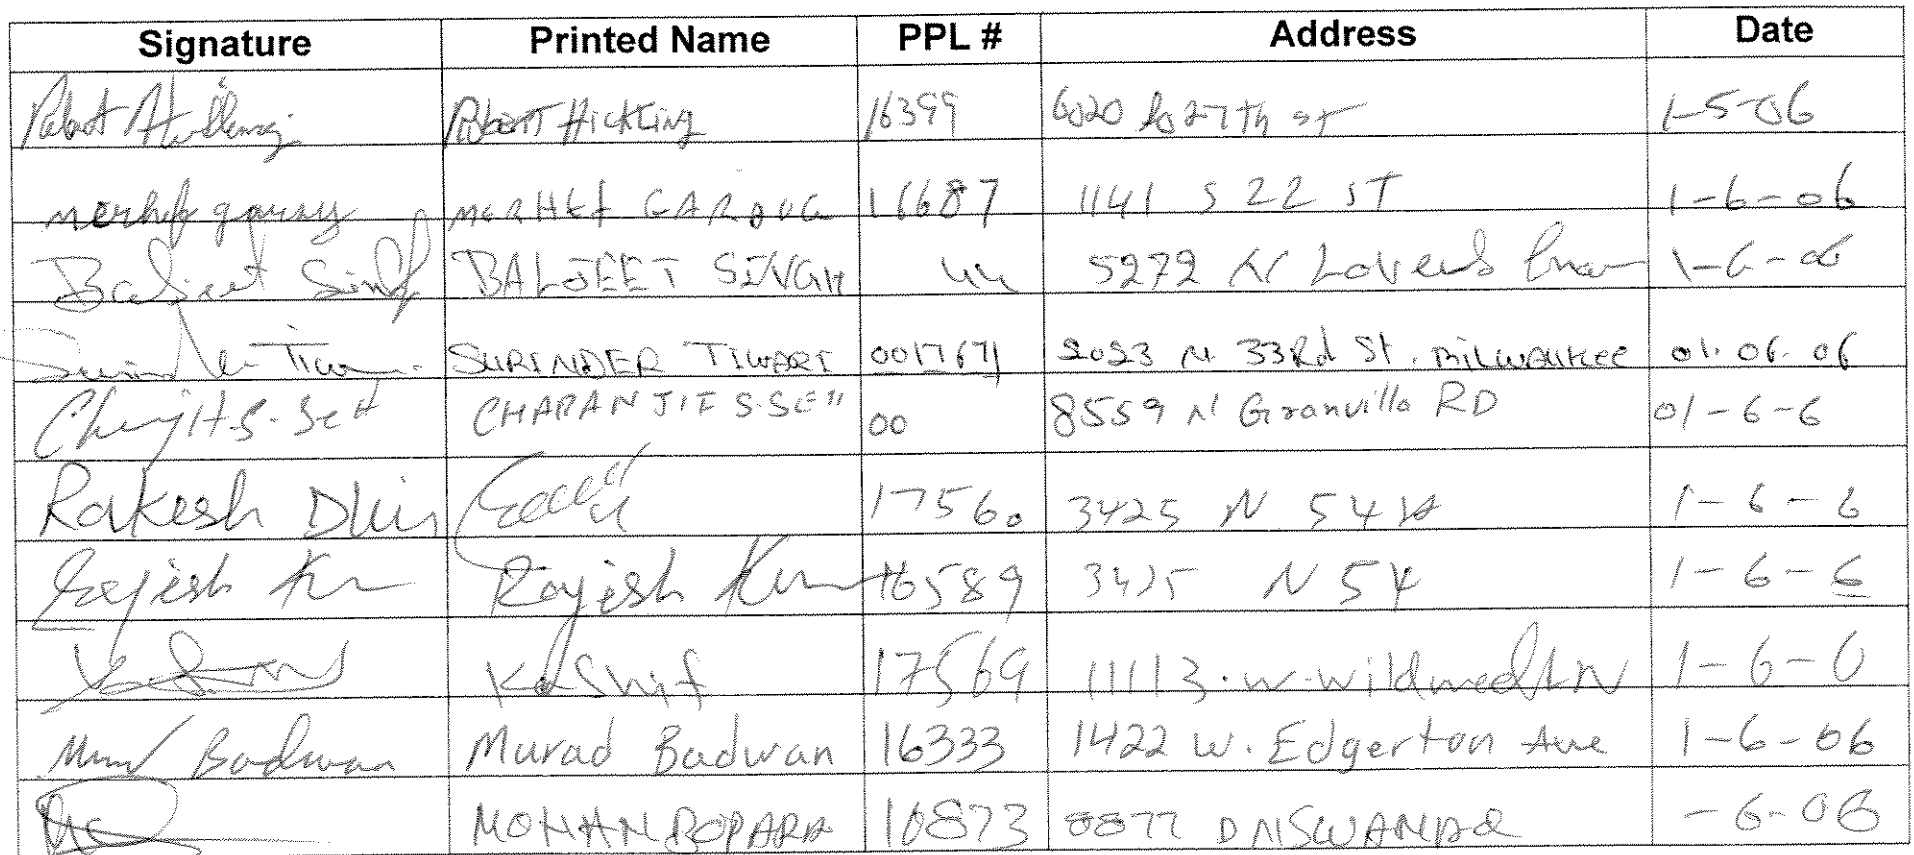 Signature Printed Name PPL # Address Date
Robert Hickling 16399 6020 So 27th st 1-5-06
MERHEF GAROUG 16687 1141 S 22 ST 1-6-06
Baljeet Singh BALJEET SINGH 5272 N Lovers Lnan 1-6-06
SURINDER TIWARI 0017671 2023 N. 33Rd St. MILWAUKEE 01.06.06
CHARANJIT S. 00 8559 N Granville RD 01-6-6
Rakesh 17560 3425 N 54 1-6-6
Rajesh Ku Rajesh Kum 16589 3425 N 54 1-6-6
Kashif 17569 11113 . W. Wildwood LN 1-6-0
Badwan Murad Badwan 16333 1422 W. Edgerton Ave 1-6-06
MOHAN BOPARA 16873 8877 -6-06